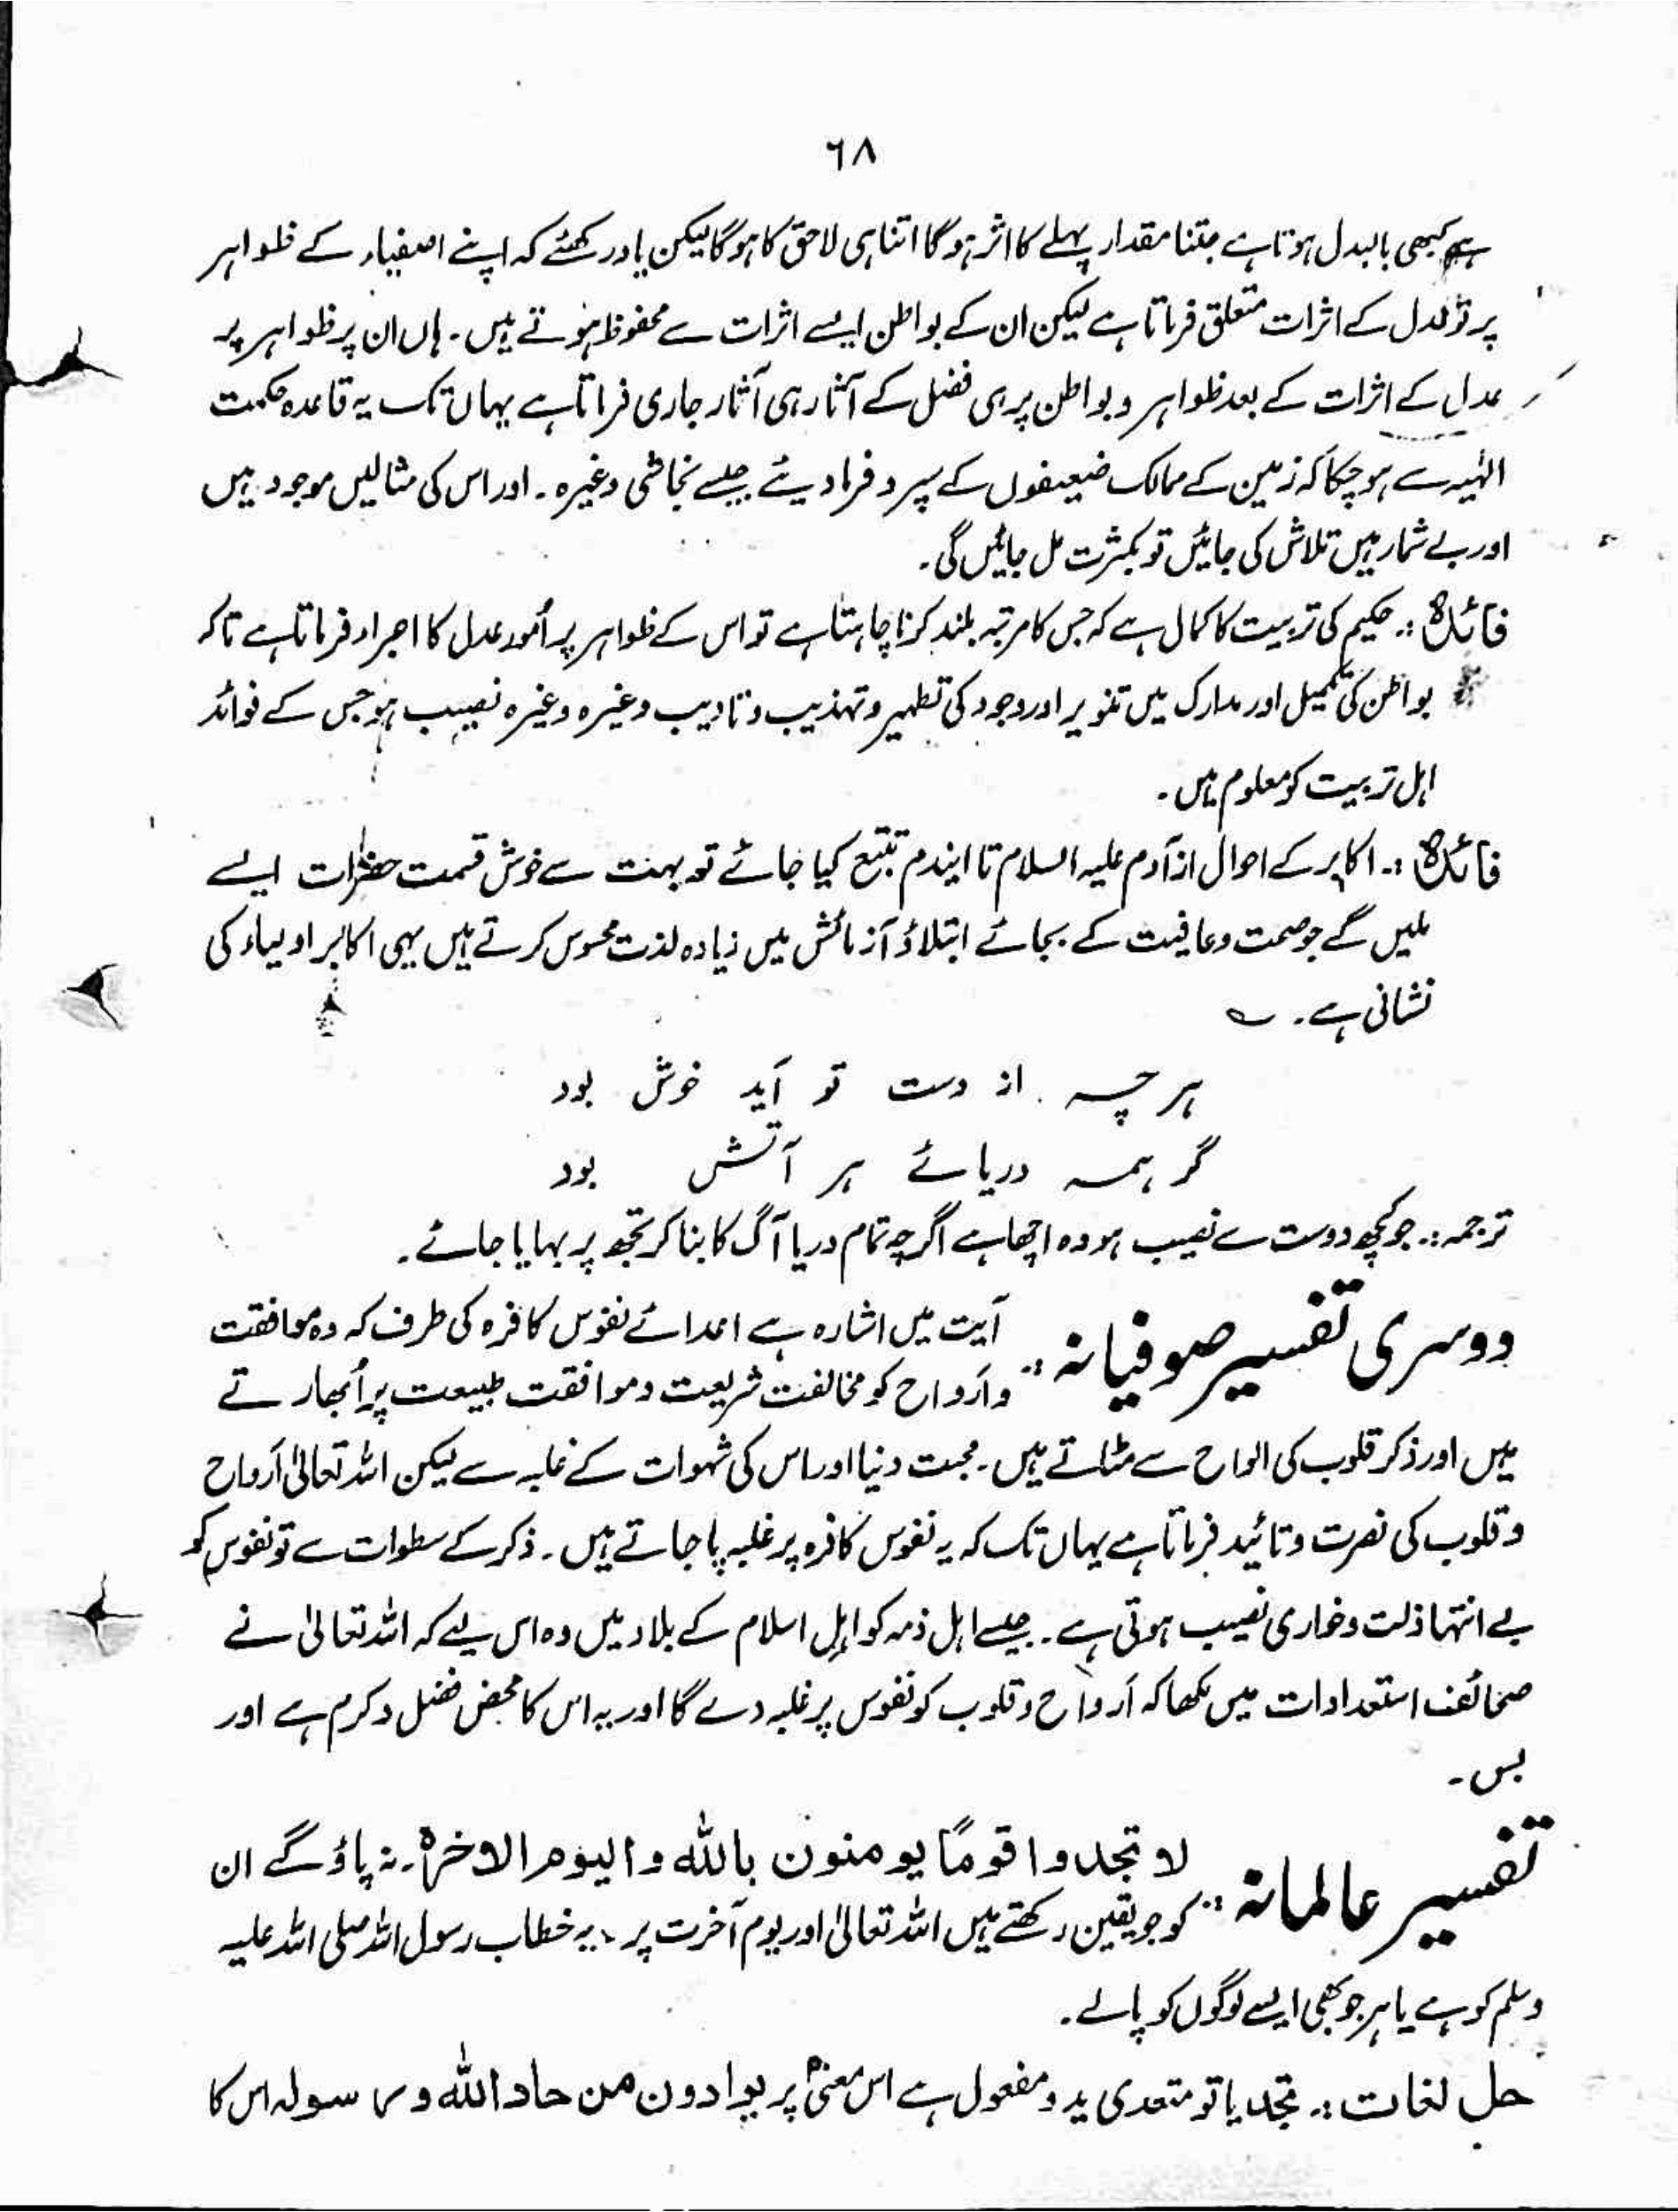 ٦٨
ہے کبھی بالبدل ہوتا ہے جتنا مقدار پہلے کا اثر ہوگا اتنا ہی لاحق کا ہوگا لیکن یاد رکھئے کہ اپنے اصفیاء کے ظواہر
پر تو عدل کے اثرات متعلق فرماتا ہے لیکن ان کے بواطن ایسے اثرات سے محفوظ ہوتے ہیں۔ ہاں ان پر ظواہر پر
عدل کے اثرات کے بعد ظواہر و بواطن پر ہی فضل کے آثار ہی آثار جاری فرماتا ہے یہاں تک یہ قاعدہ حکمت
الٰہیہ سے ہوچکا کہ زمین کے ممالک ضعیفوں کے سپرد فرما دیئے جیسے نجاشی وغیرہ۔ اور اس کی مثالیں موجود ہیں
اور بے شمار ہیں تلاش کی جائیں تو بکثرت مل جائیں گی۔
فائدہ :۔ حکیم کی تربیت کا کمال ہے کہ جس کا مرتبہ بلند کرنا چاہتا ہے تو اس کے ظواہر پر اُمور عدل کا اجراء فرماتا ہے تاکہ
بواطن کی تکمیل اور مدارک میں تنویر اور وجود کی تطہیر و تہذیب و تادیب وغیرہ وغیرہ نصیب ہو جس کے فوائد
اہل تربیت کو معلوم ہیں۔
فائدہ :۔ اکابر کے احوال از آدم علیہ السلام تا ایندم تتبع کیا جائے تو بہت سے خوش قسمت حضرات ایسے
ملیں گے جو صحت و عافیت کے بجائے ابتلاؤ آزمائش میں زیادہ لذت محسوس کرتے ہیں یہی اکابر اولیاء کی
نشانی ہے۔ ؎
ہر چہ از دست تو آید خوش بود
گر ہمہ دریائے ہر آتش بود
ترجمہ :۔ جو کچھ دوست سے نصیب ہو وہ اچھا ہے اگرچہ تمام دریا آگ کا بنا کر تجھ پر بہایا جائے۔
دوسری تفسیر صوفیانہ :۔ آیت میں اشارہ ہے اعدائے نفوس کافرہ کی طرف کہ وہ موافقت
و اَرواح کو مخالفت شریعت و موافقت طبیعت پر اُبھارتے
ہیں اور ذکر قلوب کی الواح سے مٹاتے ہیں۔ محبت دنیا اور اس کی شہوات کے غلبہ سے لیکن اللہ تعالیٰ اَرواح
و قلوب کی نصرت و تائید فرماتا ہے یہاں تک کہ یہ نفوس کافرہ پر غلبہ پا جاتے ہیں۔ ذکر کے سطوات سے تو نفوس کو
بے انتہا ذلت و خواری نصیب ہوتی ہے۔ جیسے اہل ذمہ کو اہل اسلام کے بلاد میں وہ اس لیے کہ اللہ تعالیٰ نے
صحائف استعدادات میں لکھا کہ اَرواح و قلوب کو نفوس پر غلبہ دے گا اور یہ اس کا محض فضل و کرم ہے اور
بس۔
تفسیر عالمانہ :۔ لا تجدوا قومًا یومنون باللہ والیوم الاخرۃ۔ نہ پاؤ گے ان
کو جو یقین رکھتے ہیں اللہ تعالیٰ اور یوم آخرت پر، یہ خطاب رسول اللہ صلی اللہ علیہ
وسلم کو ہے یا ہر جو بھی ایسے لوگوں کو پالے۔
حل لغات :۔ تجد یا تو متعدی بدو مفعول ہے اس معنیٰ پر یوادون من حاد اللہ ورسولہ اس کا